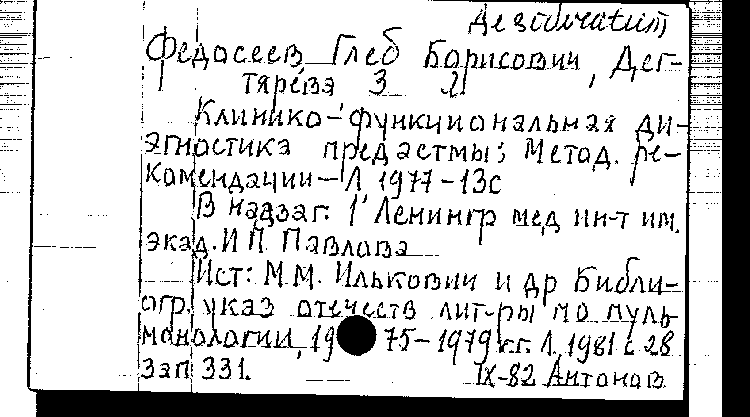 Федосеев Глеб Борисович, Дег-
тярева З Л
Клинико-функциональная ди-
агностика предастмы: Метод. ре-
комендации – Л 1977 – 13с
В надзаг: 1 Ленингр мед ин-т им.
экад. И П Павлова
Ист: М М. Илькович и др Библи-
огр. указ отечеств лит-ры по пуль-
монологии, 19 75-1979 г.г. Л. 1981 с 28
Зап 331. IX-82 Антонов